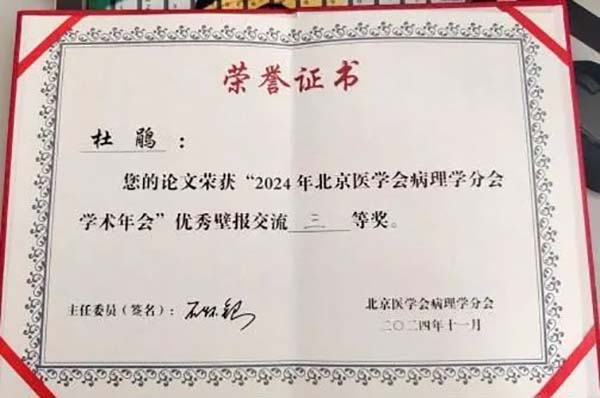 荣誉证书
杜鹃：
您的论文荣获“2024年北京医学会病理学分会
学术年会”优秀壁报交流三等奖。
主任委员（签名）：
北京医学会病理学分会
二〇二四年十一月